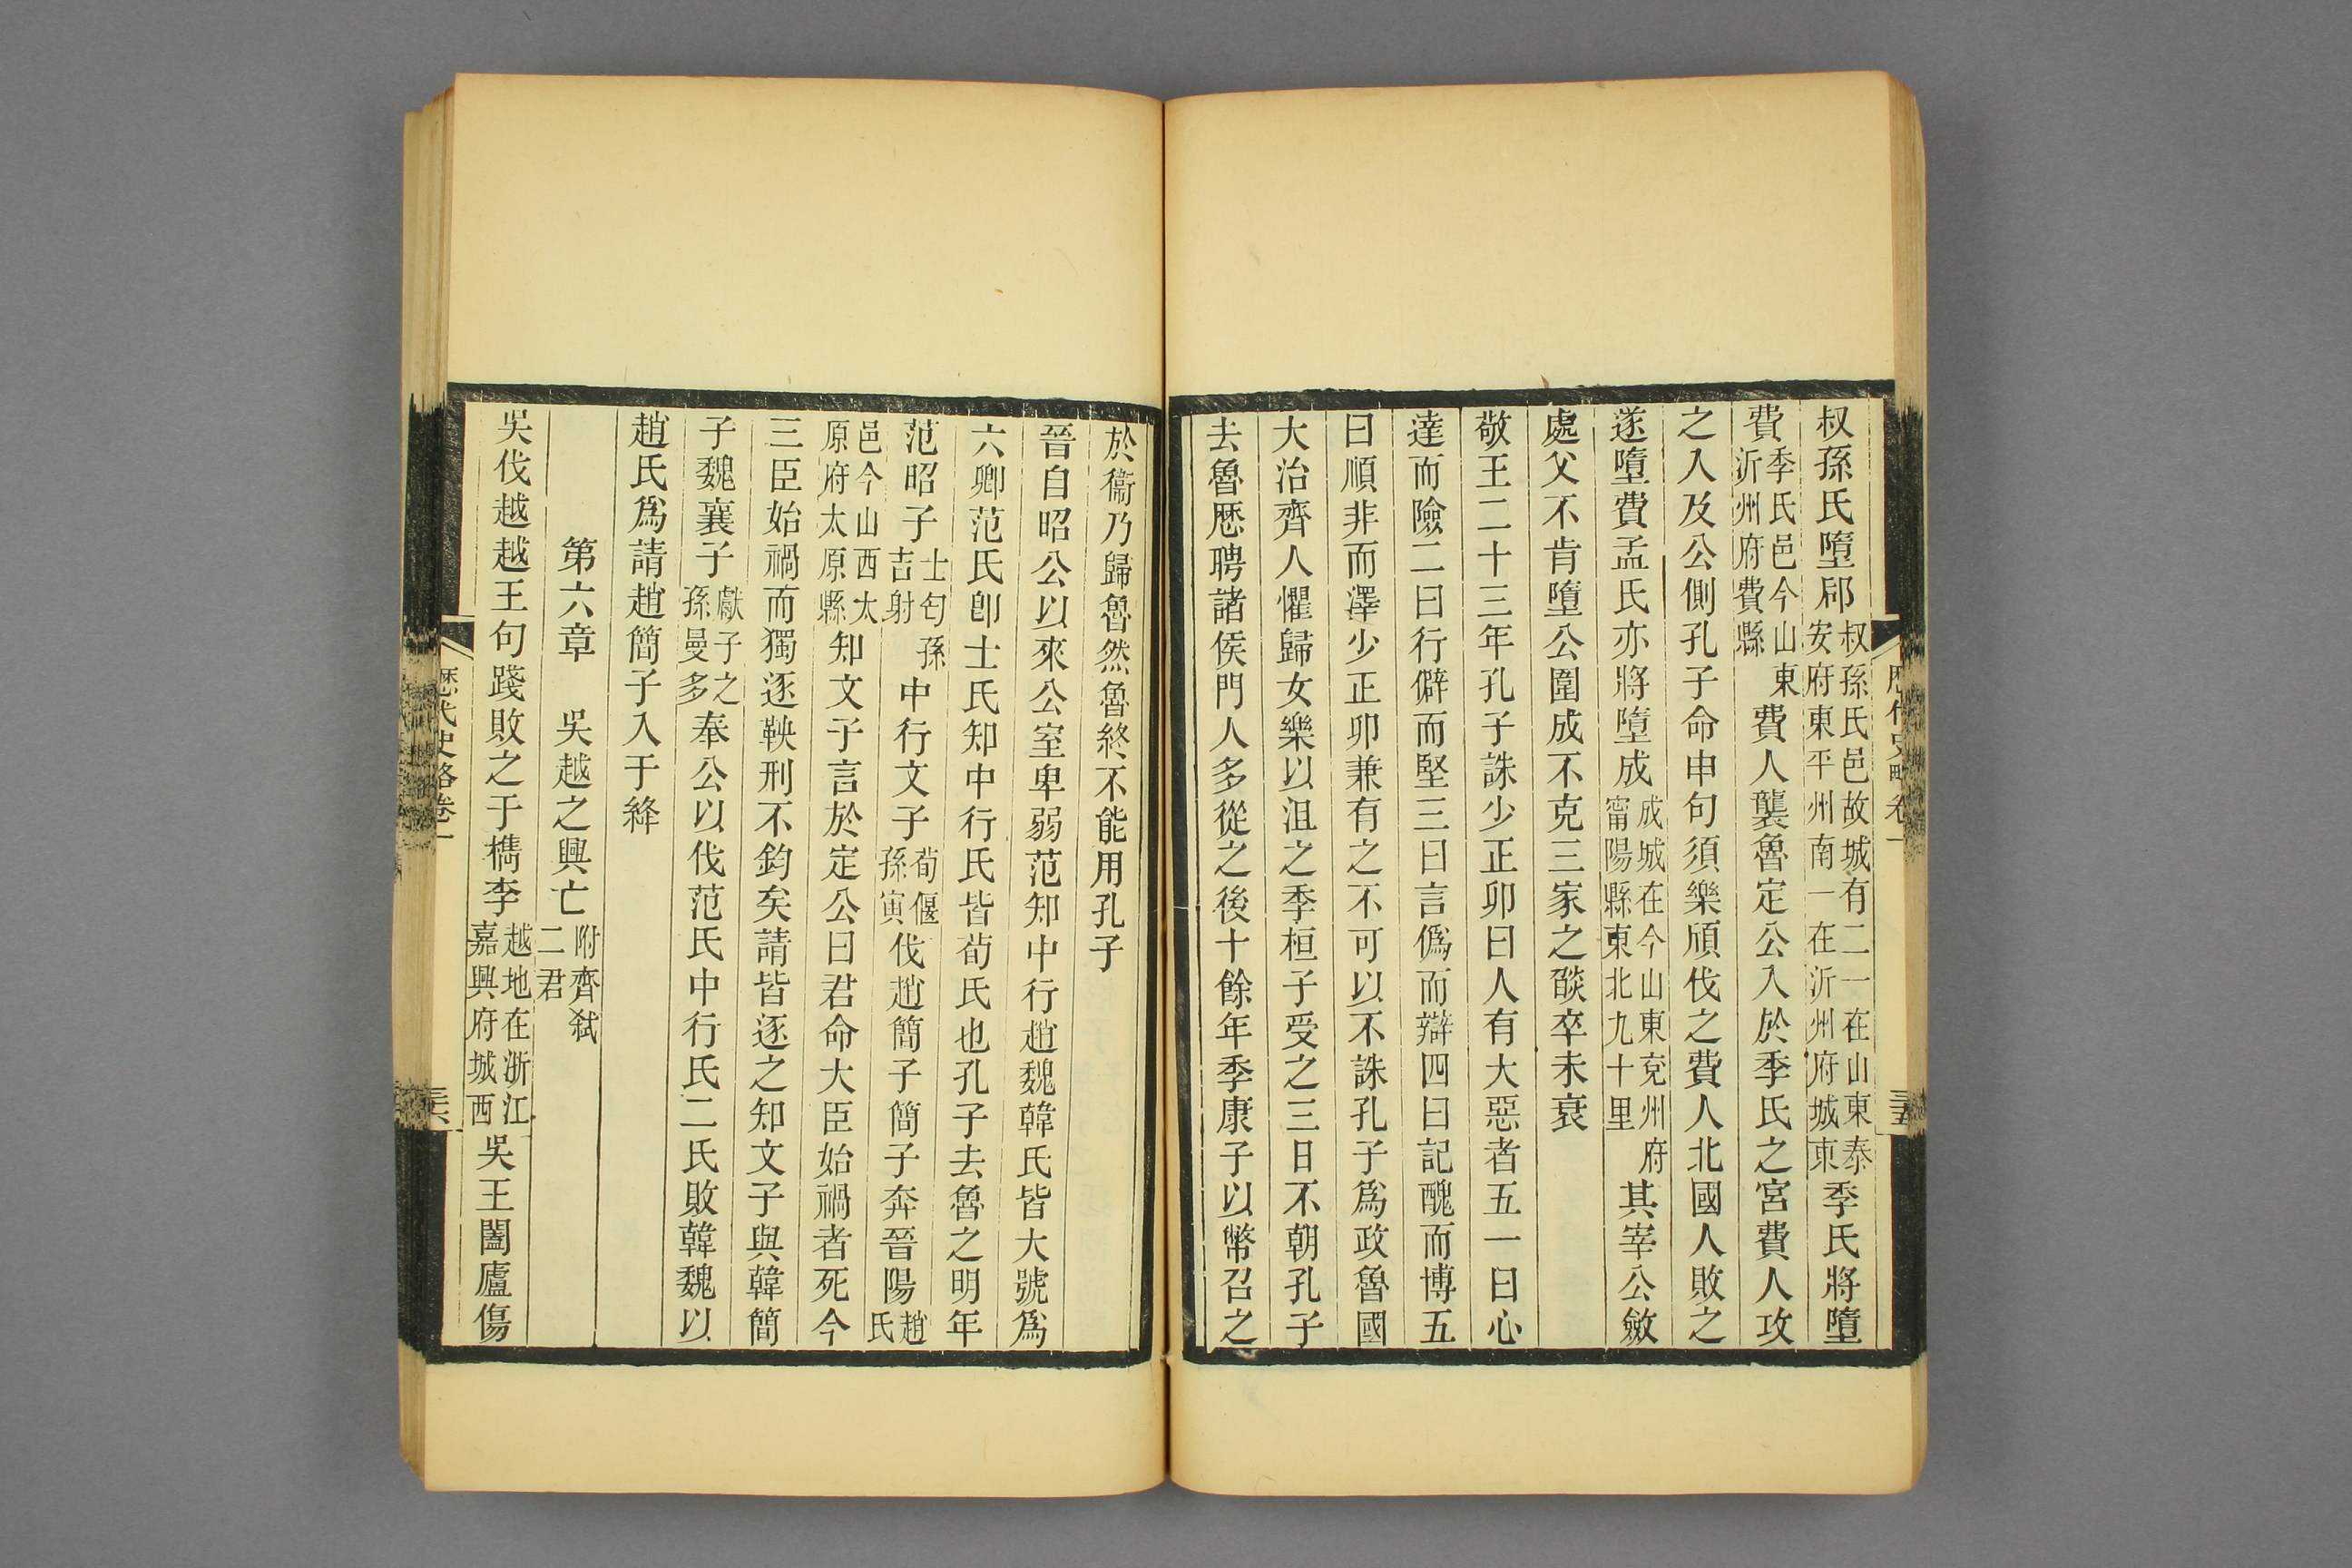 叔孫氏墮郈叔孫氏邑故城有二一在山東泰安府東平州南一在沂州府城東季氏將墮
費季氏邑今山東沂州府費縣費人襲魯定公入於季氏之宮費人攻
之入及公側孔子命申句須樂頎伐之費人北國人敗之
遂墮費孟氏亦將墮成成城在今山東兗州府甯陽縣東北九十里其宰公斂
處父不肯墮公圍成不克三家之燄卒未衰
敬王二十三年孔子誅少正卯曰人有大惡者五一曰心
達而險二曰行僻而堅三曰言僞而辯四曰記醜而博五
曰順非而澤少正卯兼有之不可以不誅孔子爲政魯國
大治齊人懼歸女樂以沮之季桓子受之三日不朝孔子
去魯歷聘諸侯門人多從之後十餘年季康子以幣召之
歷代史略卷一
三十五
於衞乃歸魯然魯終不能用孔子
晉自昭公以來公室卑弱范知中行趙魏韓氏皆大號爲
六卿范氏卽士氏知中行氏皆荀氏也孔子去魯之明年
范昭子士匄孫吉射中行文子荀偃孫寅伐趙簡子簡子奔晉陽趙氏
邑今山西太原府太原縣知文子言於定公曰君命大臣始禍者死今
三臣始禍而獨逐鞅刑不鈞矣請皆逐之知文子與韓簡
子魏襄子獻子之孫曼多奉公以伐范氏中行氏二氏敗韓魏以
趙氏爲請趙簡子入于絳
第六章　吳越之興亡附齊弒二君
吳伐越越王句踐敗之于檇李越地在浙江嘉興府城西吳王闔廬傷
歷代史略卷一
三十六